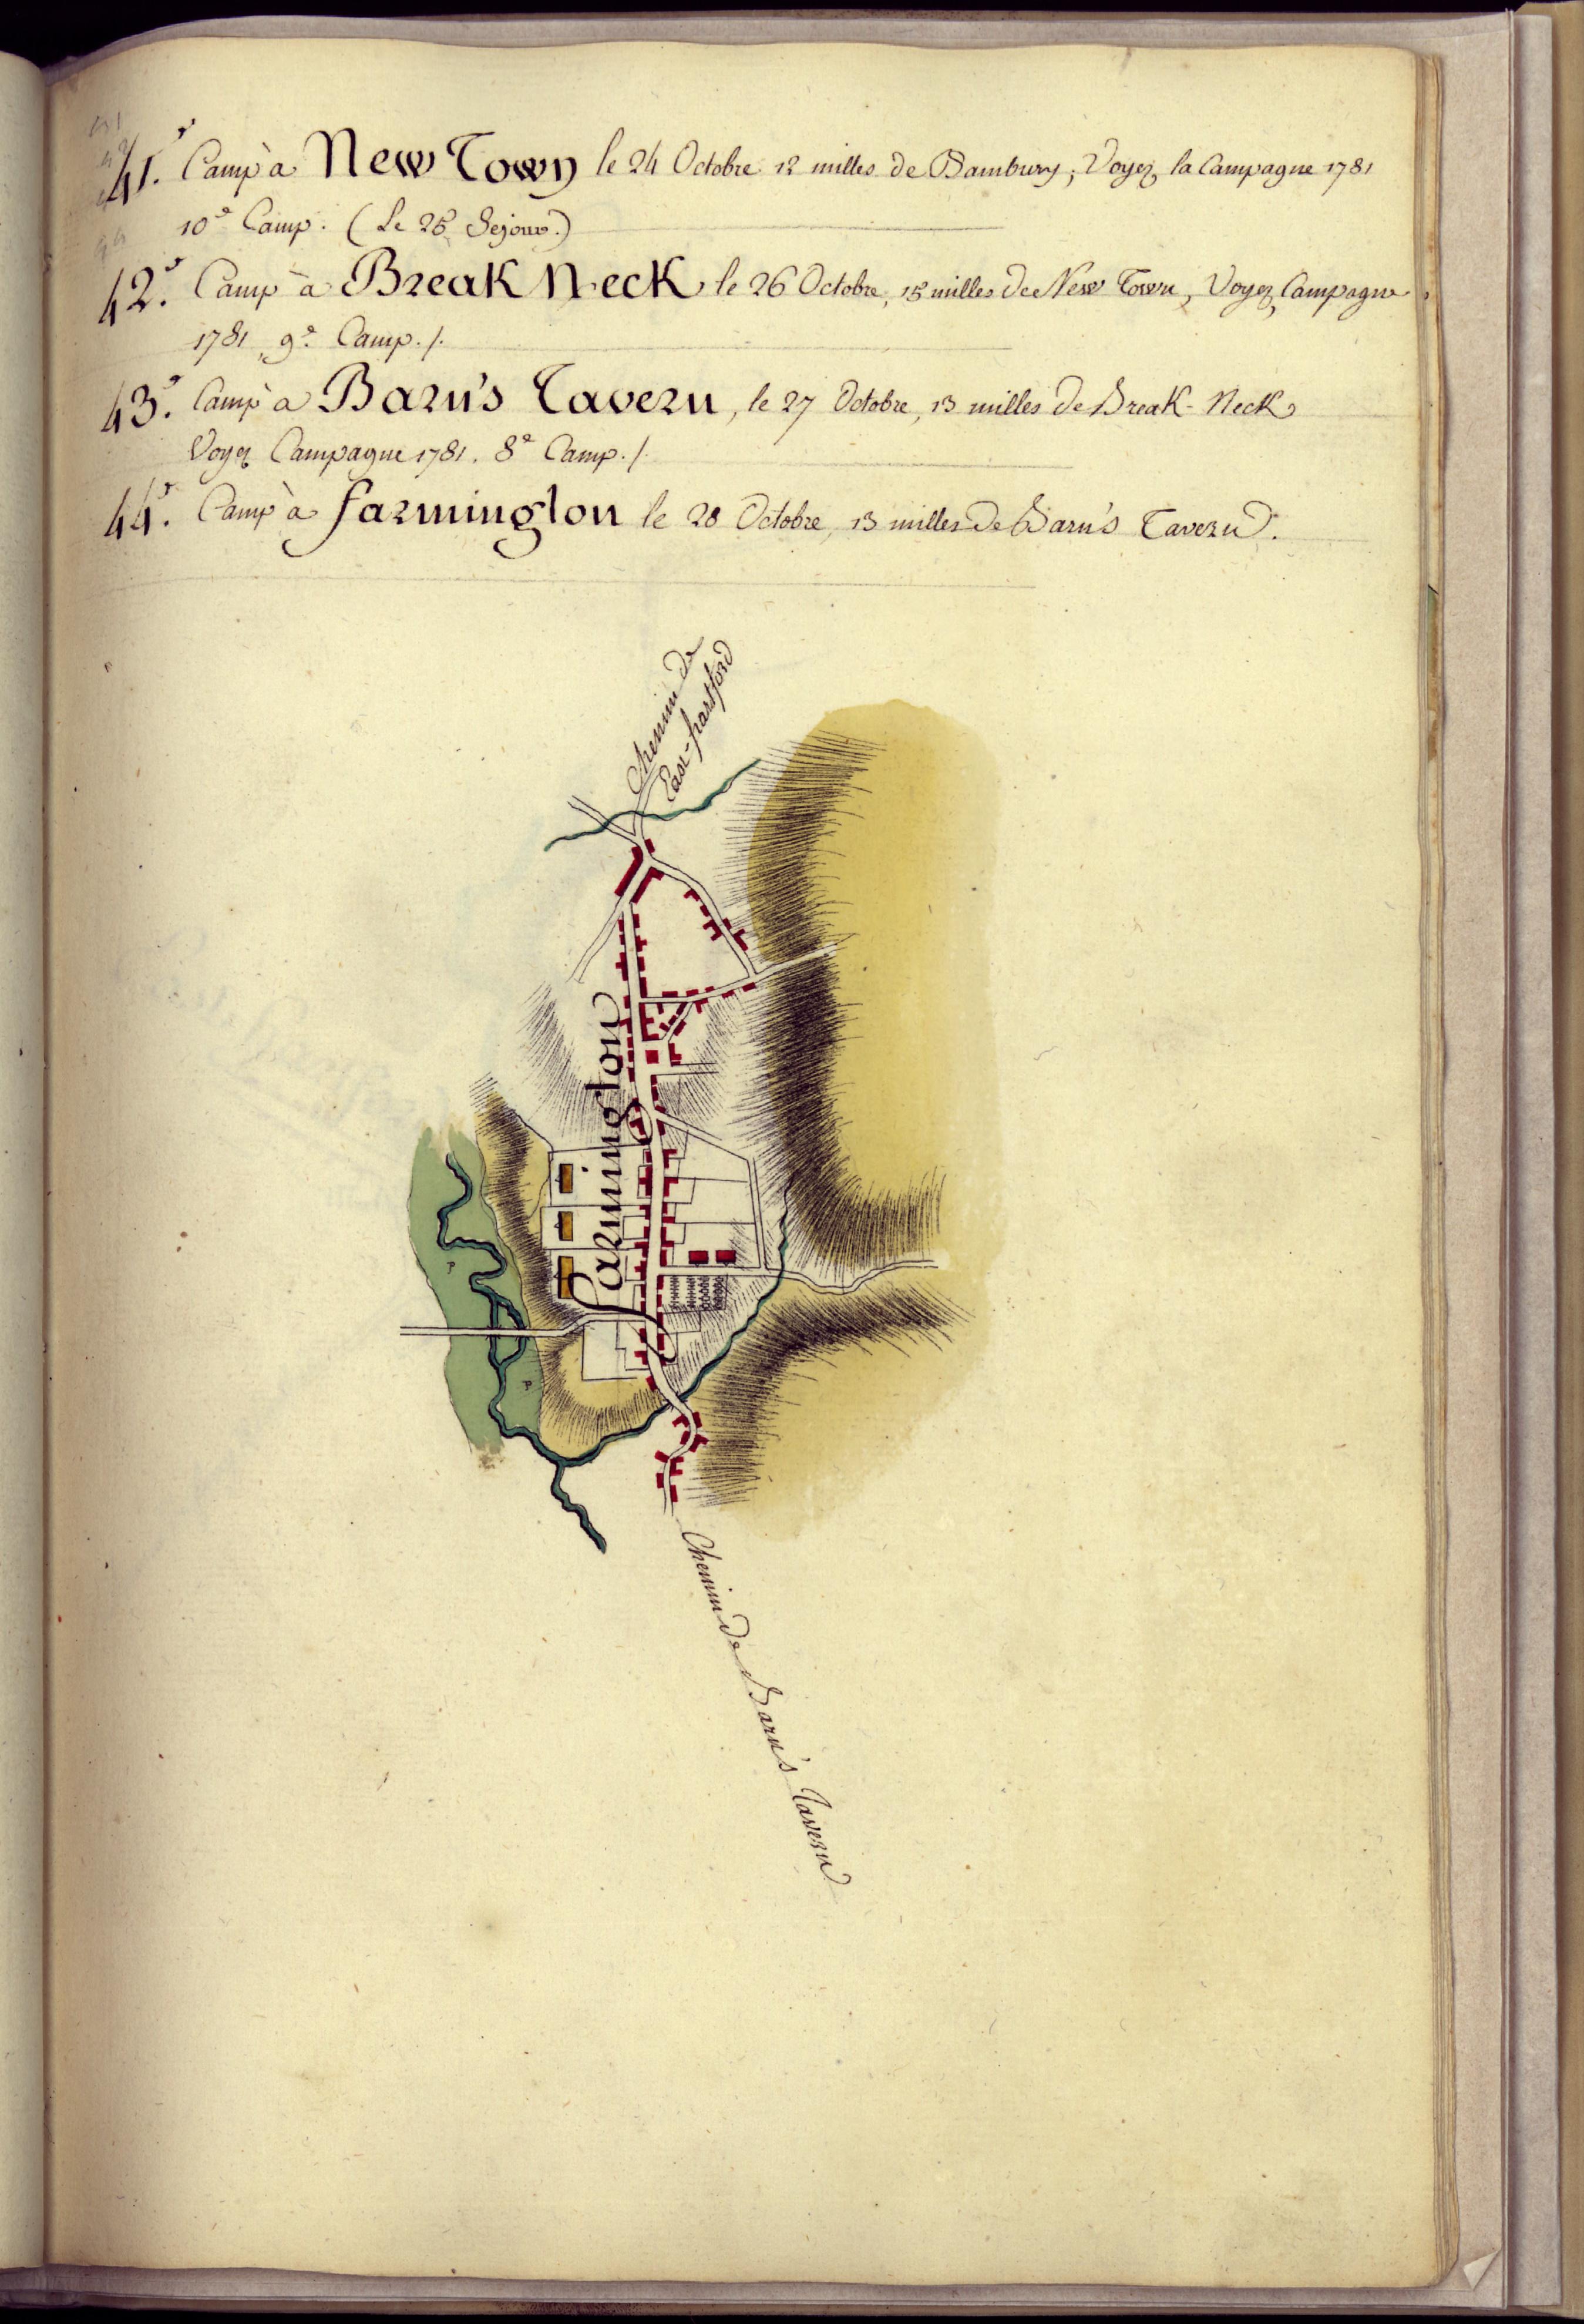 41.e Camp à New Town le 24 Octobre 12 milles de Bambury; Voyez la Campagne 1781
10e Camp. (Le 25 Sejour.)
42.e Camp à Break Neck le 26 Octobre, 15 milles de New Town, Voyez Campagne
1781, 9e Camp./.
43.e Camp à Barn's Tavern, le 27 Octobre, 13 milles de Break-Neck
Voyez Campagne 1781. 8e Camp./.
44.e Camp à farmington le 28 Octobre, 13 milles de Barn's Tavern.
Chemin de
East-hartford
farmington
P
P
Chemin de Barn's Tavern